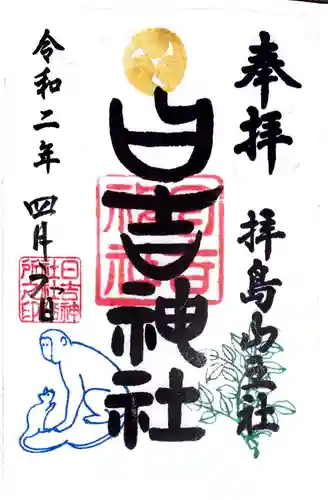 奉拝
拝島山王社
日吉神社
令和二年
四月六日
日吉神
社社務
所之印